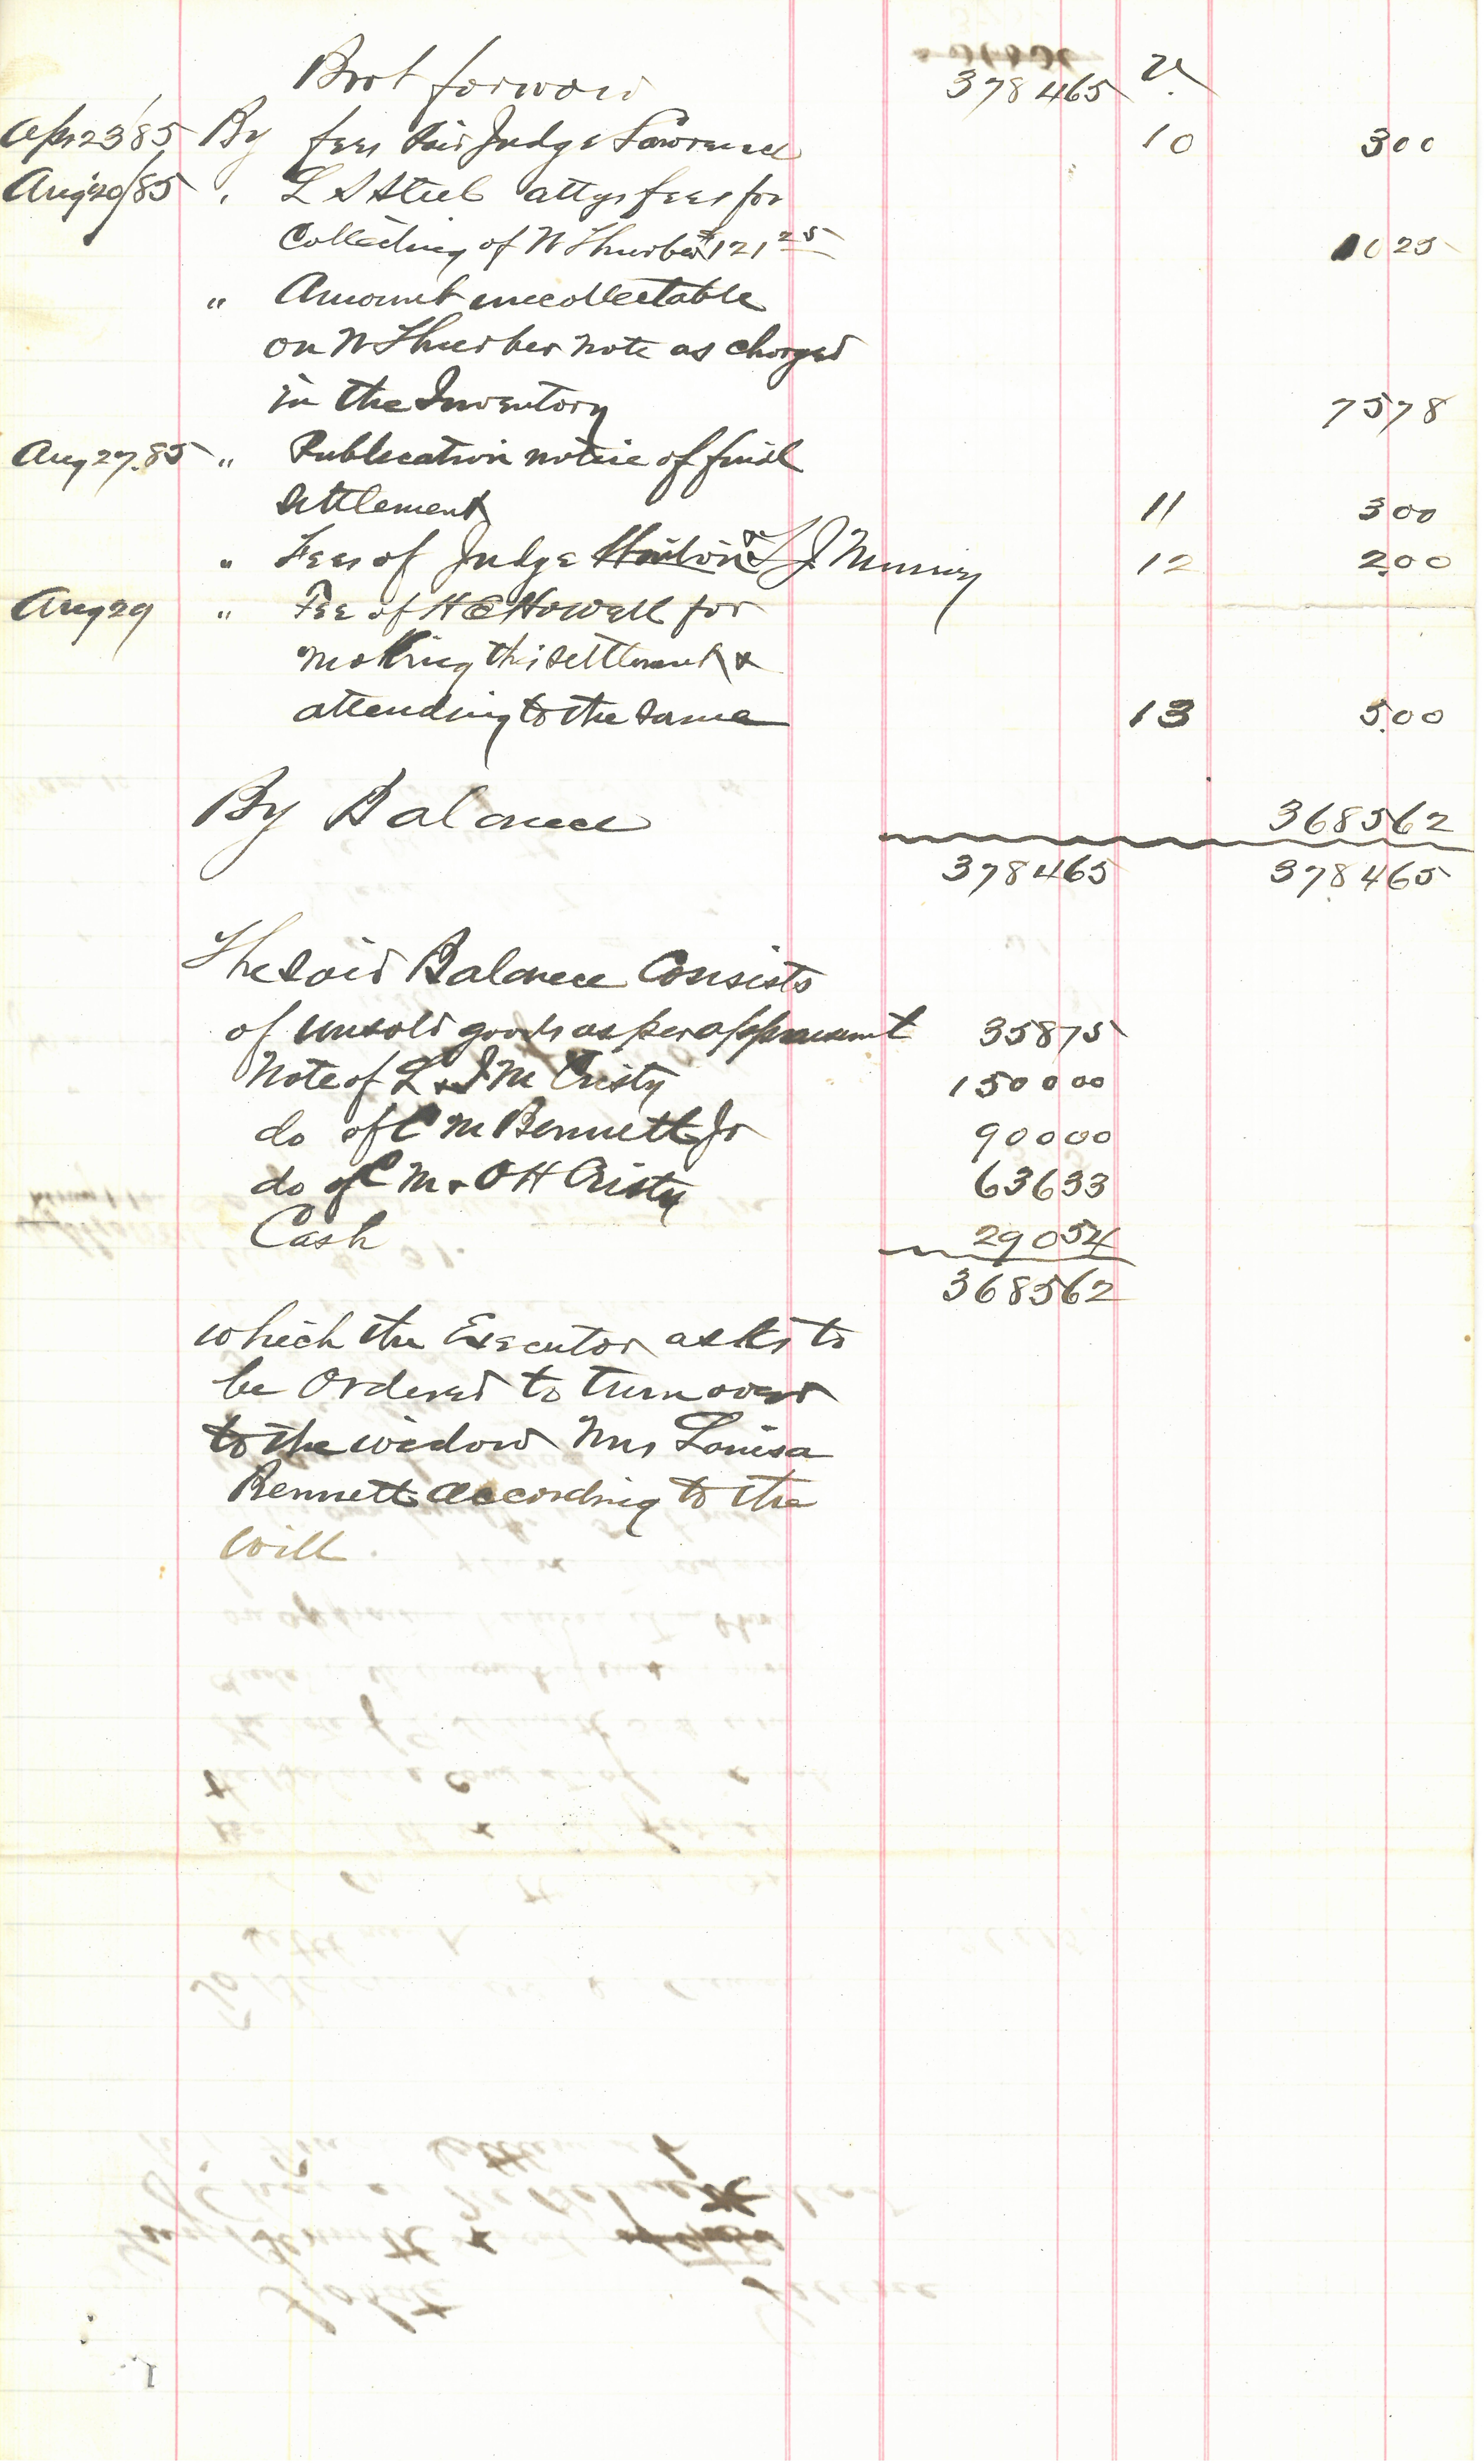 Brot forward 378465 V.
Apr 23/85 By fees paid Judge Lawrence 10 300
Aug 20/85 " L S Steel attys fees for
Collecting of N Thurber $121 25 1025
" Amount uncollectable
on N Thurber note as charged
in the Inventory 7578
Aug 27. 85 " Publication notice of final
settlement 11 300
" Fees of Judge & L J Murry 12 200
Aug 29 " Fee of H C Howell for
making this settlement &
attending to the same 13 500
By Balance 368562
378465 378465
The said Balance Consists
of unsold goods as per appraisement 35875
Note of L & J M Cristy 150000
do of C M Bennett Jr 90000
do of C M & O H Cristy 63633
Cash 29054
368562
which the Executor asks to
be Ordered to turn over
to the widow Mrs Louisa
Bennett according to the
will.